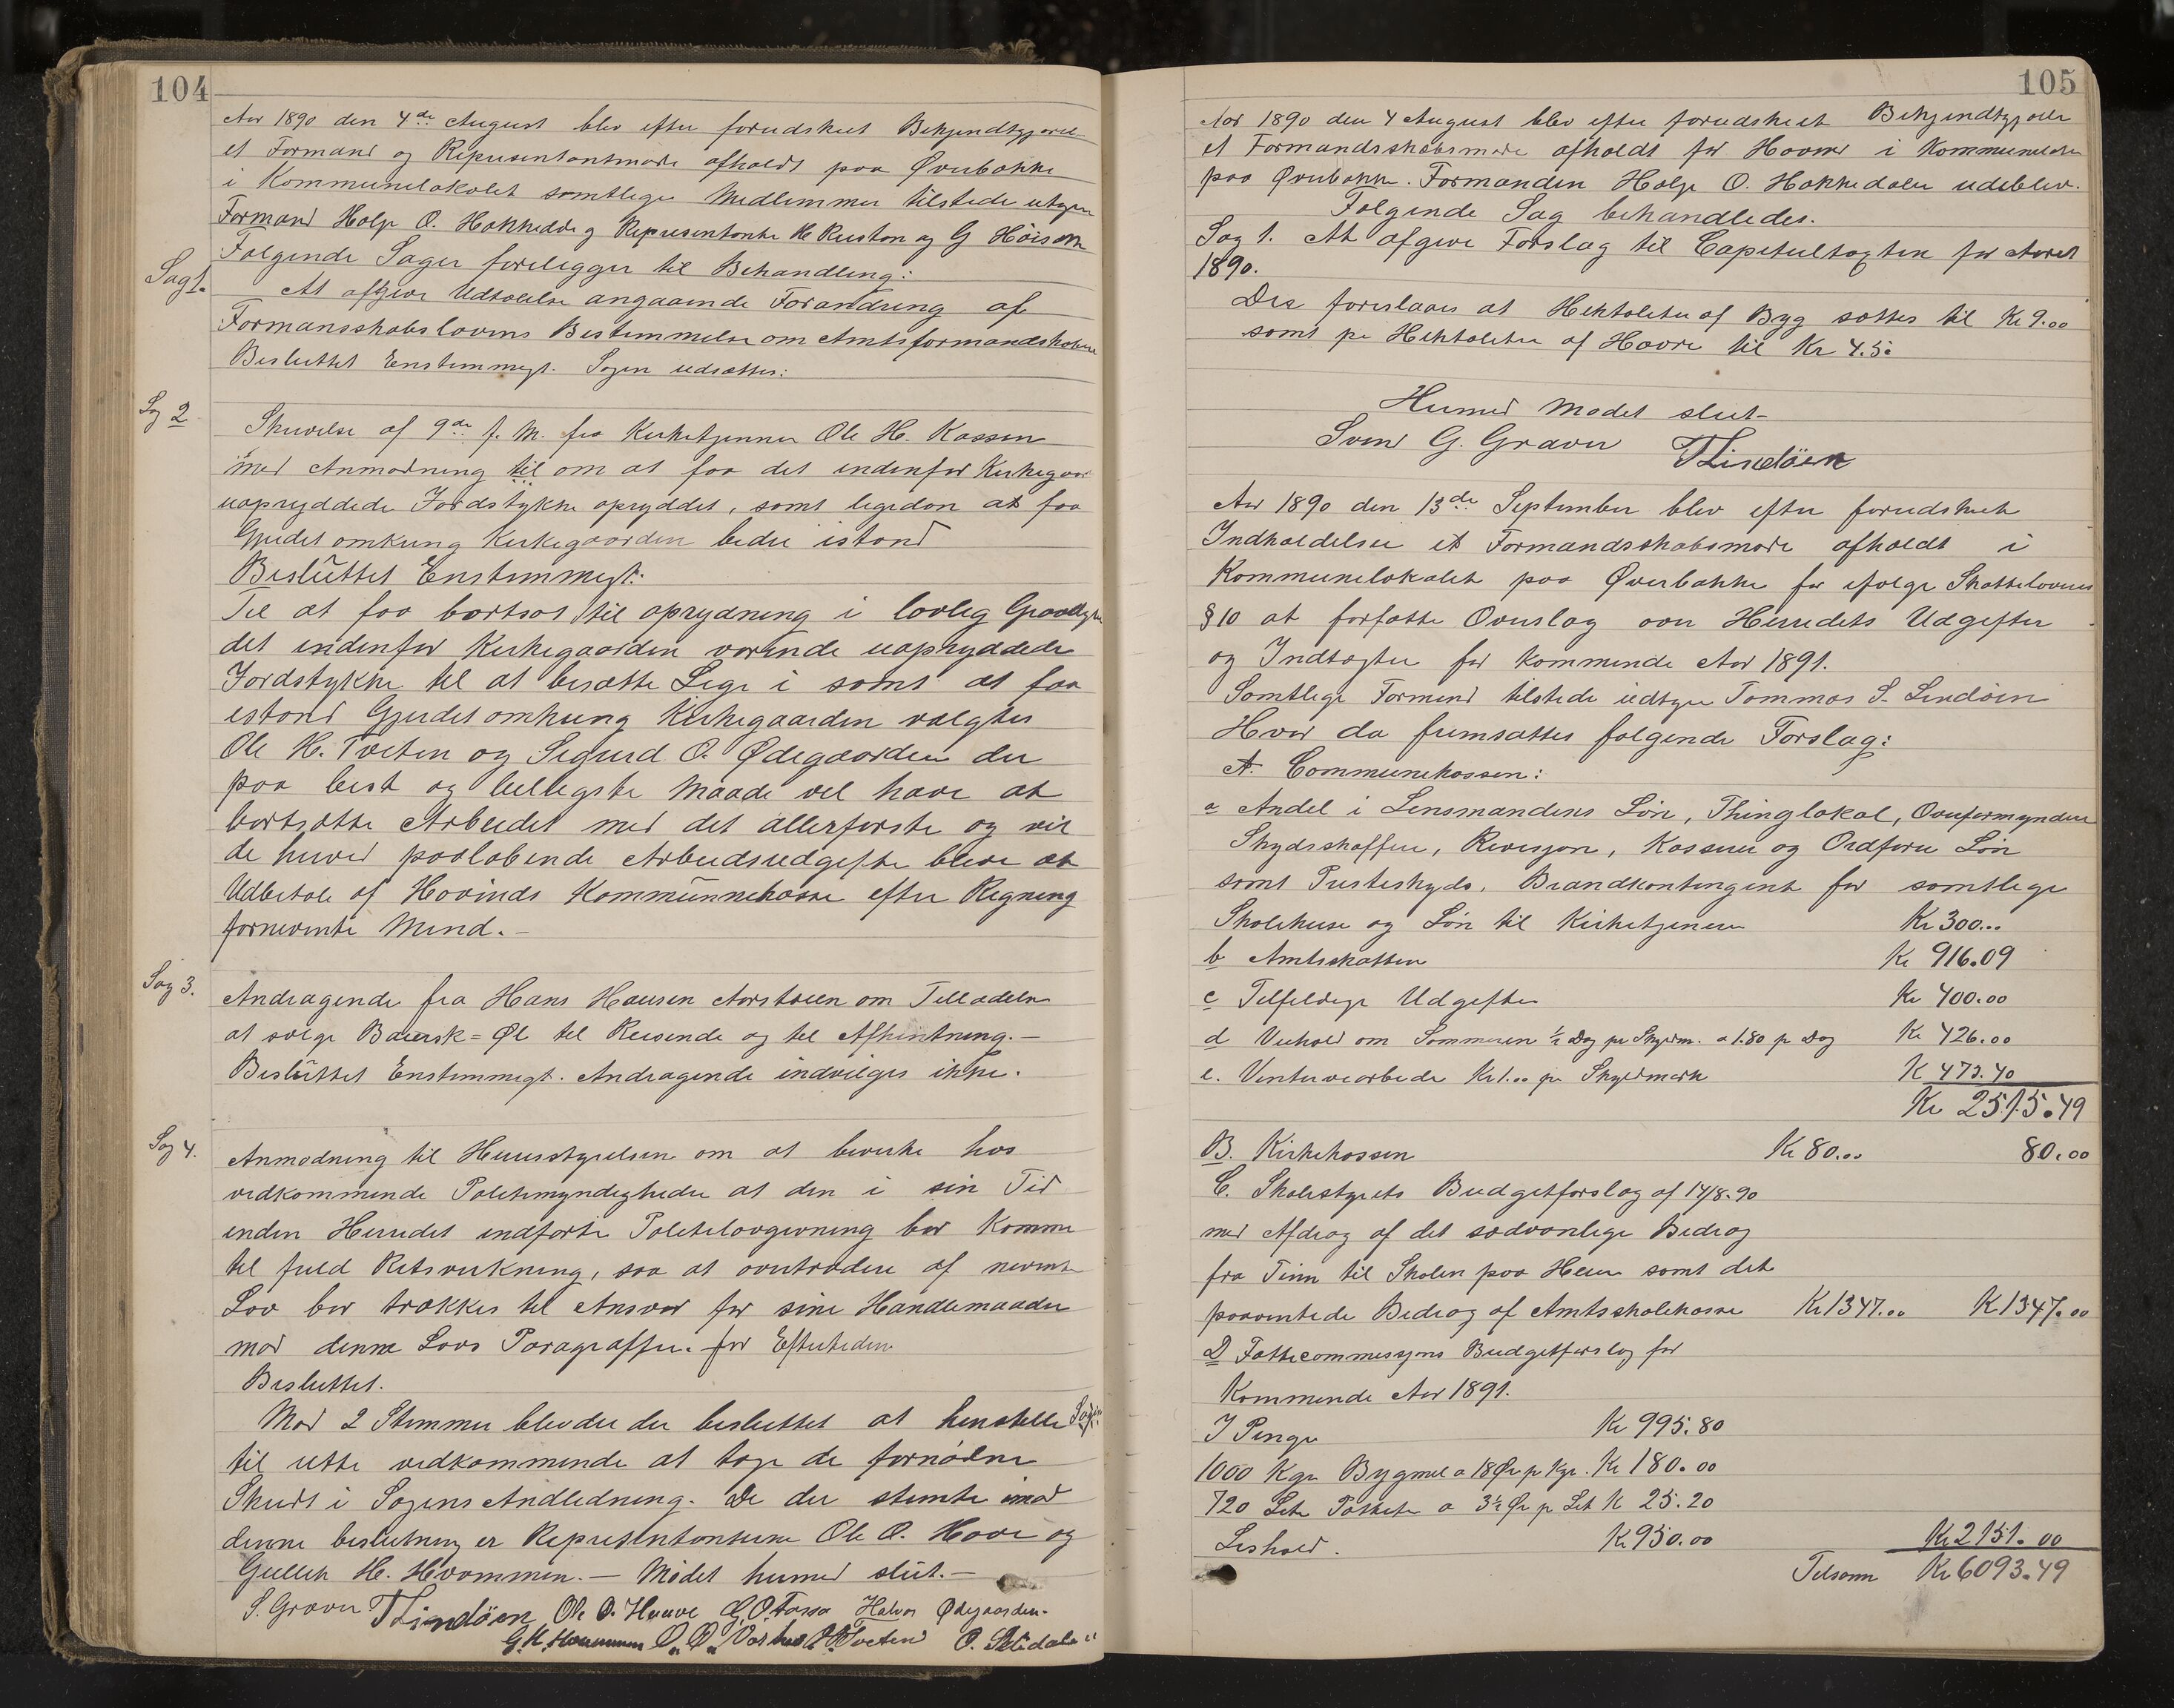 104
Aar 1890 den 4de August blev efter forudskeet Bekjendtgjørel
et Formand og Repræsentantmøde afholdt paa Øverbakke
i Kommunelokalet samtlige Medlemmer tilstede utagen
Formand Holje O. Hakkedale og Repræsentante H. Ruston og G Höisæn
Følgende Sager foreligger til Behandling:
Sag 1.
At afgive Udtalelse angaaende Forandring af
Formansskabslovens Bestemmelse om Amtsformandskabene
Besluttet Enstemmigt. Sagen udsættes:
Sag 2
Skrivelse af 9de f. M. fra Kirketjenner Ole H. Kaasen
med Anmodning til om at faa det indenfor Kirkegaar
uopryddede Jordstykke opryddet, samt ligedan at faa
Gjerdet omkring Kirkegaarden bedre istand
Besluttet Enstemmigt:
Til at faa bortsat til oprydning i lovlig Gravdybde
det indenfor Kirkegaarden værende uopryddede
Jordstykke til at besætte Lige i samt at faa
istand Gjerdet omkring Kirkegaarden valgtes
Ole H. Tveten og Sigurd O. Ødegaarden der
paa best og billigste Maade vil have at
bortsætte Arbeidet med det allerførste og vil
de herved paaløbende Arbeidsudgifte blive at
Udbetale af Hovinds Kommunnekasse efter Regning
fornevnte Mænd.-
Sag 3.
Andragende fra Hans Hansen Aarstveen om Tilladelse
at sælge Baiersk=Øl til Reisende og til Afhentning.-
Besluttet Enstemmigt. Andragende indvilges ikke.
Sag 4.
Anmodning til Herresstyrelsen om at bevirke hos
vedkommende Politimyndigheder at den i sin Tid
inden Herredet indførte Politilovgivning bør komme
til fuld Retsvirkning, saa at overtrædere af nevnte
Lov bør trækkes til Ansvar for sine Handlemaader
mod denne Lovs Paragraffer. for Eftertiden
Besluttet.
Mod 2 Stemmer blevder der besluttet at henstille Sagen
til rette vedkommende at tage de fornødne
Skridt i Sagens Andledning. De der stemte imod
denne beslutning er Repræsentanterne Ole O. Hove og
Gullik H. Hvammen.- Mödet hermed slut.-
S. Graver TLindöen Ole O. Huuve G.O. Fossø Halvor Ødegaarden.
G.H. Hvammen O. O. H. Tveten O.
105
Aar 1890 den 4 August blev efter forudskeet Bekjendtgjørelse
et Formandsskabsmøde afholdt for Hovind i Kommunelokalet
paa Øverbakke. Formanden Holje O. Hakkedalen udeblev.
Følgende Sag behandledes.
Sag 1. At afgive Forslag til Capiteltagten for Aaret
1890.
Der foreslaaes at Hektoliter af Byg sættes til Kr 9.00
samt pr Hektoliter af Havre til Kr 4.50
Hermed Mødet slut-
Svend G. Graver TLindöen
Aar 1890 den 13de September blev efter forudskeet
Indkaldelse et Formandsskabsmøde afholdt i
Kommunelokalet paa Øverbakke for ifølge Skattelovens
§ 10 at forfatte Overslag over Herredets Udgifter
og Indtægter for kommende Aar 1891.
Samtlige Formend tilstede udtagen Tommas S. Lindöen
Hvor da fremsættes følgende Forslag:
A. Communekassen:
a Andel i Lensmandens Lön, Thinglokal, Overformynderi
Skydsskaffer, Revisjon, Kasserer og Ordfører Lön
samt Presteskyds, Brandkontingent for samtlige
Skolehuse og Lön til Kirketjeneren Kr 300...
b Amtsskatten Kr 916.09
c Tilfeldige Udgifter Kr 400.00
d Veihold om Sommeren ½ Dag pr Skyldm. a 1.80 pr Dag Kr 426.00
e. Vinterveiarbeide Kr 1.00 pr Skyldmark K 473.40
Kr 2515.49
B. Kirkekassen Kr 80.00 80.00
C. Skolestyrets Budgetforslag af 14/8.90
med Afdrag af det sædvanlige Bidrag
fra Tinn til Skolen paa Hem samt det
paaventede Bidrag af Amtsskolekasse Kr 1347.00 K 1347.00
D Fattigcommisjons Budgetforslag for
Kommende Aar 1891.
I Penge Kr 995.80
1000 Kgr Bygmel a 18 Øre pr Kgr. Kr 180.00
720 Liter Poteter a 3½ Øre pr Lit K 25.20
Leshold. K 950.00 Kr 2151.00
Tilsamm Kr 6093.49